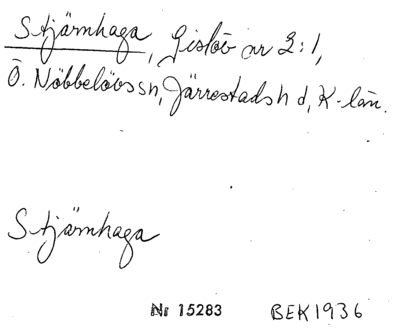 Stjärnhaga, Gislöv nr 2:1,
Ö. Nöbbelövs sn, Järrestads hd, K-län.
Stjärnhaga
Nr 15283 BEK1936